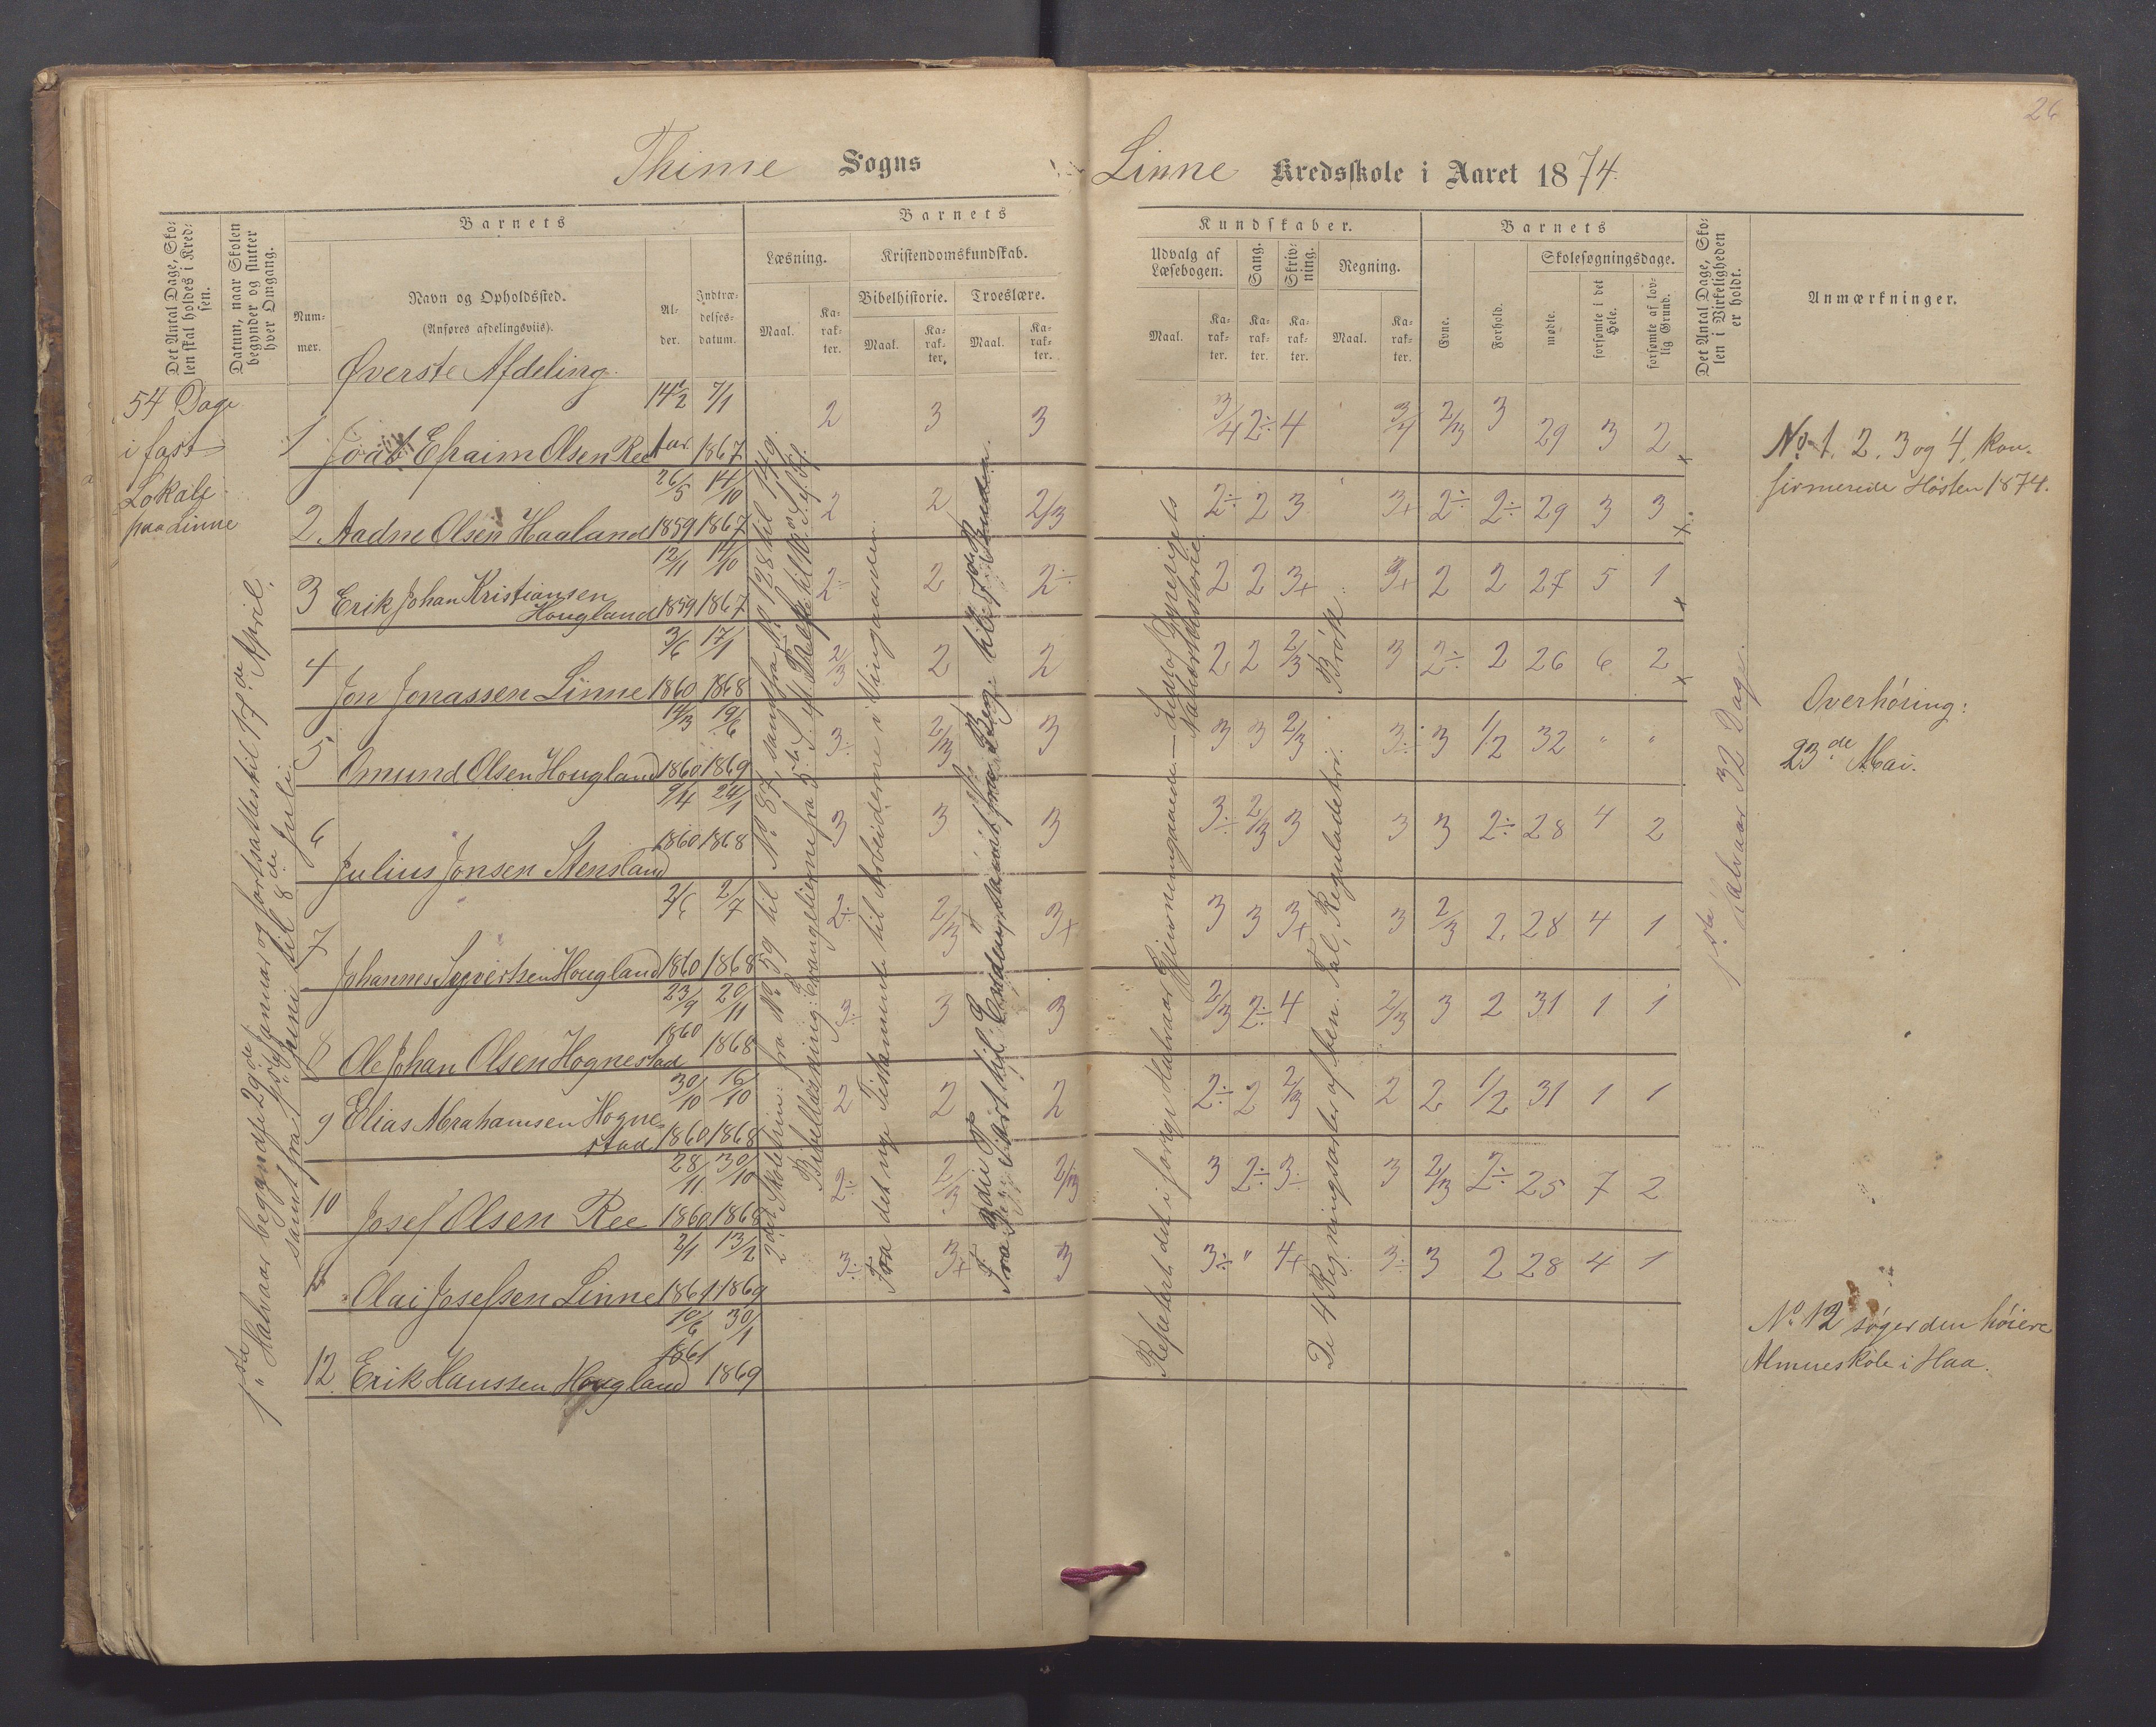 26
Thime Sogns Linne Kredsskole i Aaret 1874.
Det Antal Dage, Sko-
len skal holdes i Kred-
sen.
Datum, naar Skolen
begynder og slutter
hver Omgang.
Barnets
Num-
mer.
Navn og Opholdssted.
(Anføres afdelingsviis).
Al-
der.
Indtræ-
delses-
datum.
Barnets
Læsning.
Maal.
Ka-
rak-
ter.
Kristendomskundskab.
Bibelhistorie.
Maal.
Ka-
rak-
ter.
Troeslære.
Maal.
Ka-
rak-
ter.
Kundskaber.
Udvalg af
Læsebogen.
Maal.
Ka-
rak-
ter.
Sang.
Ka-
rak-
ter.
Skriv-
ning.
Ka-
rak-
ter.
Regning.
Maal.
Ka-
rak-
ter.
Barnets
Evne.
Forhold.
Skolesøgningsdage.
mødte.
forsømte i det
Hele.
forsømte af lov-
lig Grund.
Det Antal Dage, Sko-
len i Virkeligheden
er holdt.
Anmærkninger.
Øverste Afdeling.
54 Dage
i fast
Lokale
paa Linne
1ste Halvaar begyndte 29de Januar og fortsattes til 17de April,
samt fra Juni til 8de Juli.
1 Joab Efraim Olsen Ree 14½ aar 7/1 1867 2 3 3 3/4 2÷ 4 3/4 2/3 3 29 3 2 x
2 Aadne Olsen Haaland 26/5 1859 14/10 1867 2 2 2/3 2÷ 2 3 3+ 2÷ 2÷ 29 3 3 x
3 Erik Johan Kristiansen
Hougland 12/11 1859 14/10 1867 2÷ 2 2÷ 2 2 3+ 3+ 2 2 27 5 1 x
4 Jon Jonassen Linne 3/6 1860 17/1 1868 2/3 2 2 2 2 2/3 3 2÷ 2 26 6 2 x
5 Omund Olsen Hougland 14/3 1860 19/6 1869 3÷ 2/3 3 3 3 2/3 3÷ 3 1/2 32 " "
6 Julius Jonsen Stensland 9/4 1860 24/1 1868 3 3 3 3÷ 2/3 3 3 3 2÷ 28 4 2
7 Johannes Syvertsen Hougland 2/6 1860 2/7 1868 2÷ 2/3 3+ 3 3 3+ 3 2/3 2 28 4 1
8 Ole Johan Olsen Hognestad 23/9 1860 20/11 1868 3÷ 3 3 2/3 2÷ 4 2/3 3 2 31 1 1
9 Elias Abrahamsen Hogne-
stad 30/10 1860 16/10 1868 2 2 2 2÷ 2 2/3 2 2 1/2 31 1 1
10 Josef Olsen Ree 28/11 1860 30/10 1868 2÷ 2/3 2/3 3 2÷ 3÷ 3 2/3 2÷ 25 7 2
Olai Josefsen Linne 2/1 1861 13/2 1869 3÷ 3+ 3 3÷ " 4+ 3÷ 3 2 28 4 1
12 Erik Hanssen Hougland 10/6 1861 30/1 1869
2det Skoletrin: fra No 59 til No 87, samt fra No 128 til 149.
Bibellæsning: Evangelierne fra 5te S. eft.
Fra det nye Testamente til Arbeiderne i Viingaarden.
Fra 3die Part til
Repetert det i forrige Halvaar Gjennemgaaede. –
Naturhistorie
De 4 Regningsarter af ben. Tal, Reguladetri. Brøk.
1ste Halvaar 32 Dage.
No 1, 2, 3 og 4, kon-
firmerede Høsten 1874.
Overhøring:
23de Mai.
No 12 søger den høiere
Almueskole i Haa.